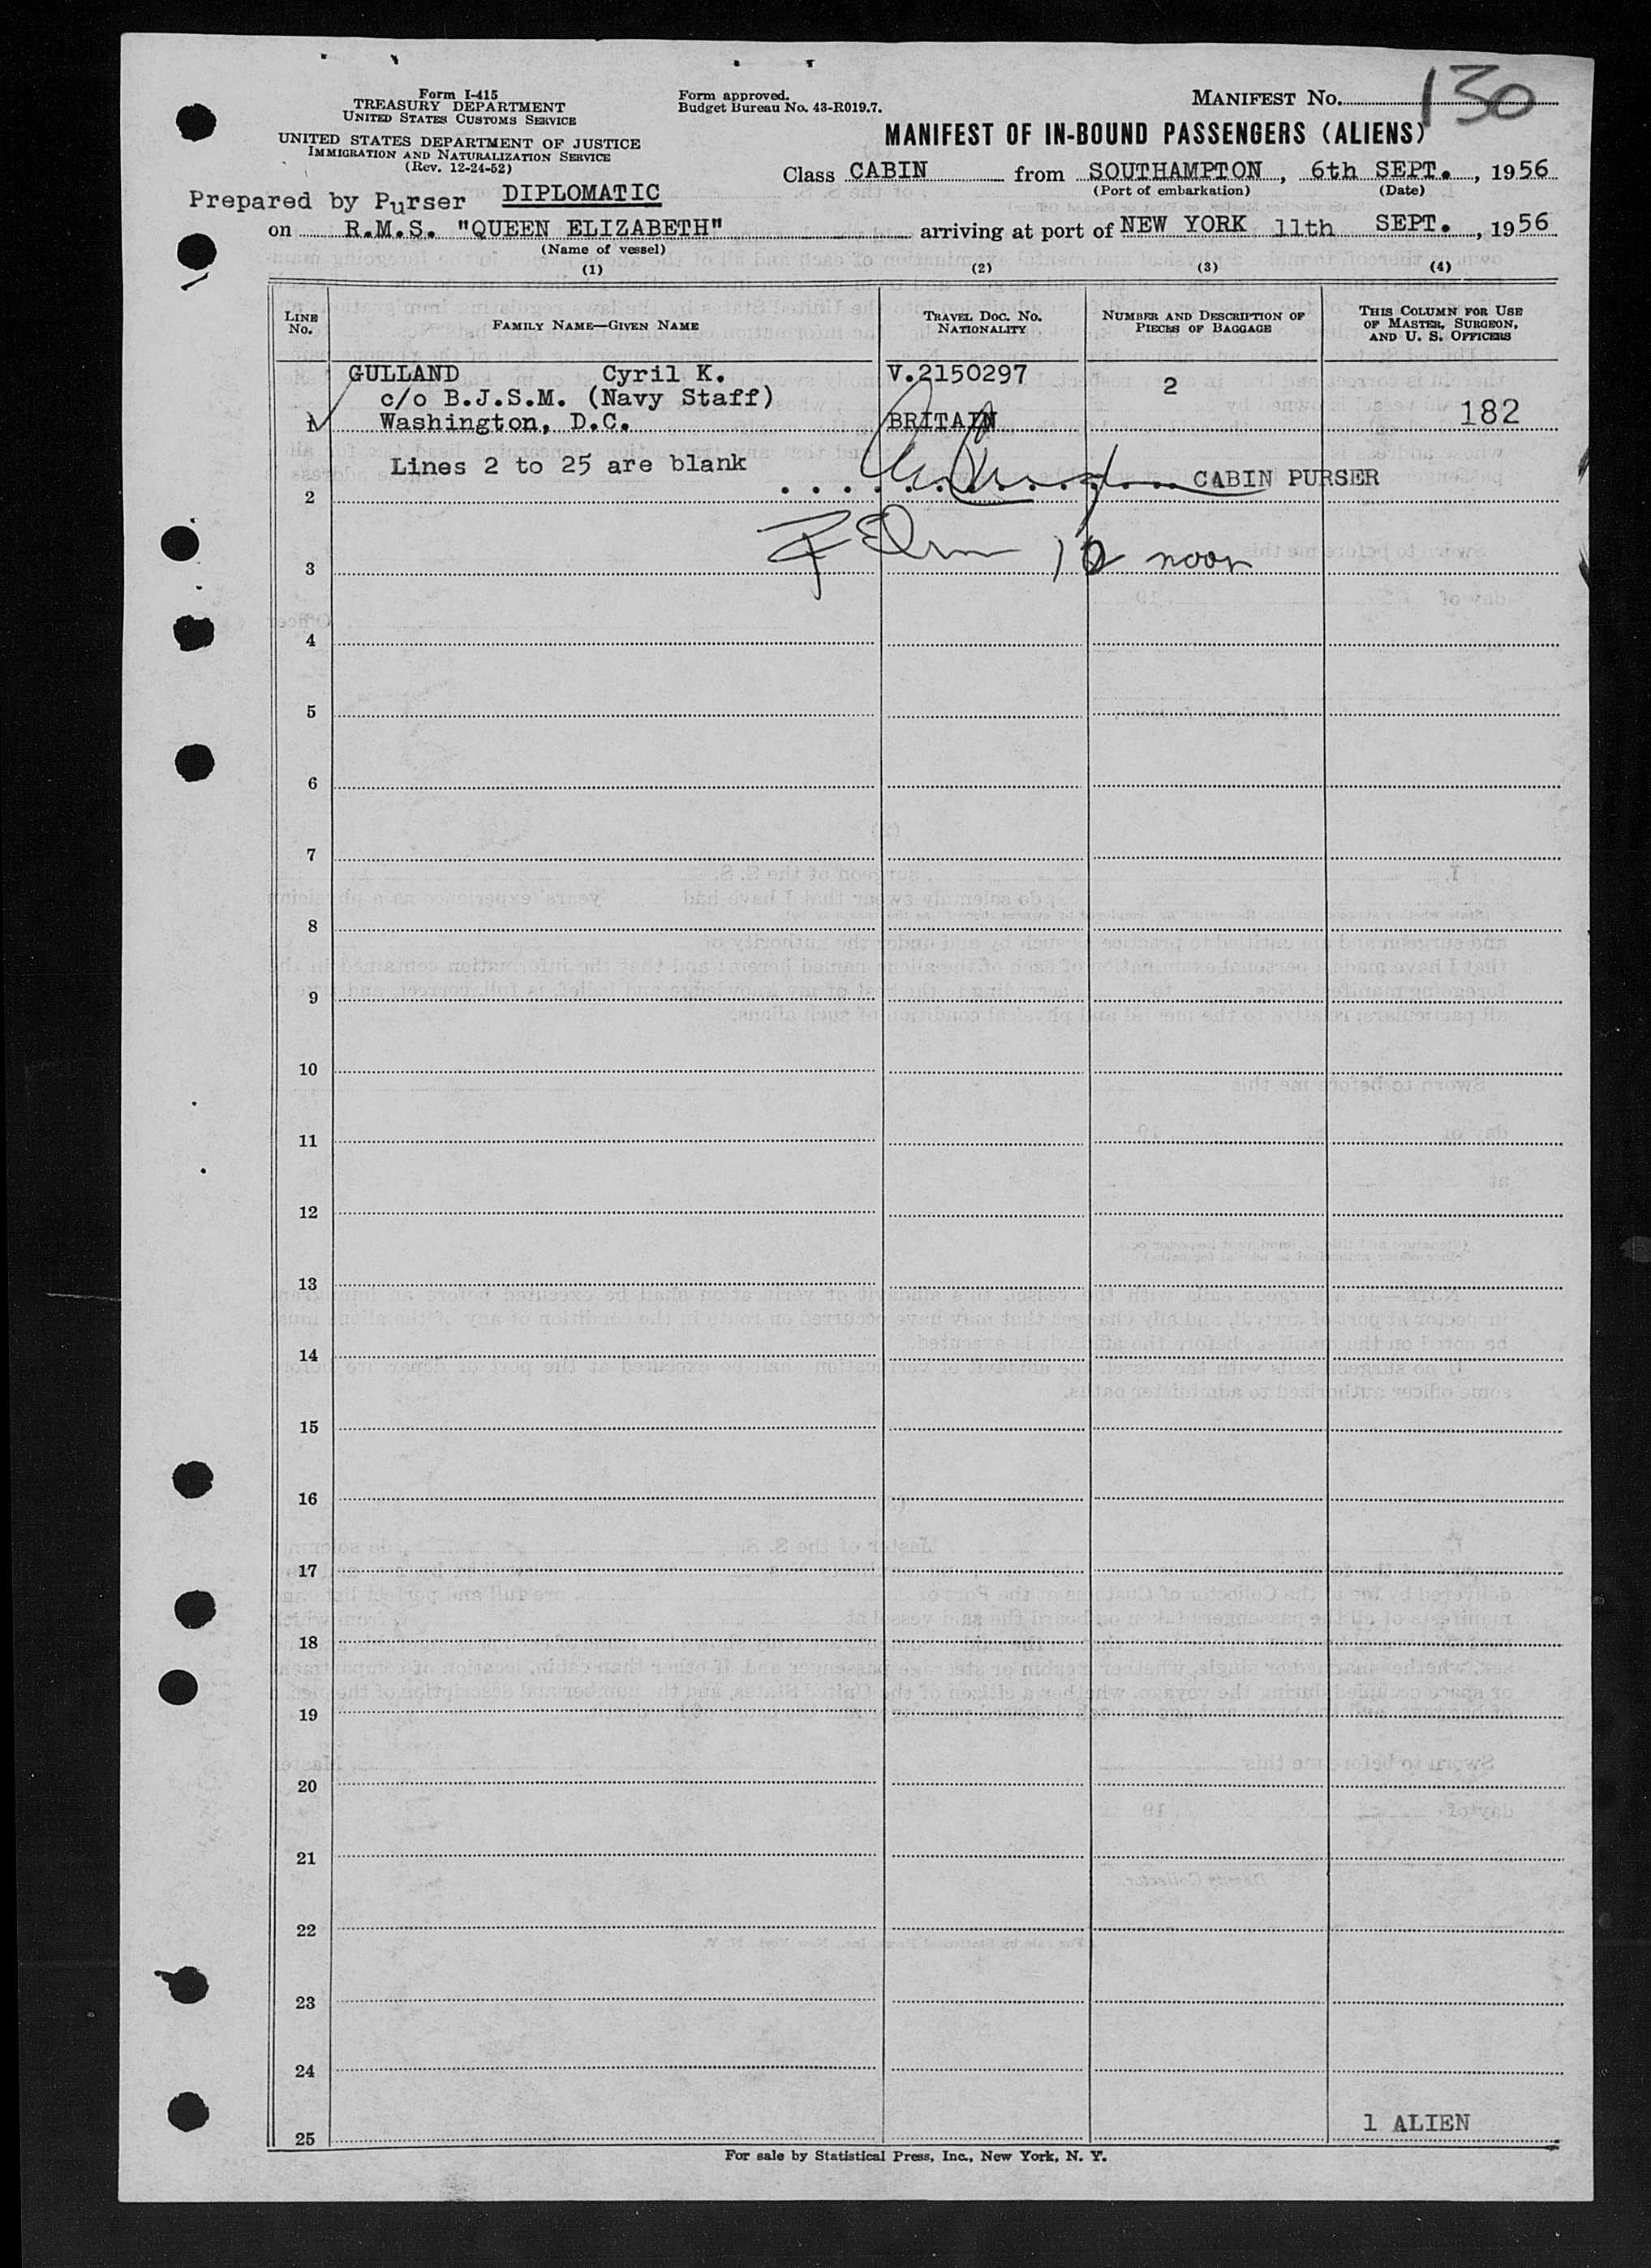 Form I-415
TREASURY DEPARTMENT
UNITED STATES CUSTOMS SERVICE
UNITED STATES DEPARTMENT OF JUSTICE
IMMIGRATION AND NATURALIZATION SERVICE
(Rev. 12-24-52)
Form approved.
Budget Bureau No. 43-R019.7.
MANIFEST No. 130
MANIFEST OF IN-BOUND PASSENGERS (ALIENS)
Class CABIN from SOUTHAMPTON, 6th SEPT., 1956
(Port of embarkation) (Date)
Prepared by Purser DIPLOMATIC
on R.M.S. "QUEEN ELIZABETH" arriving at port of NEW YORK 11th SEPT., 1956
(Name of vessel)
(1) (2) (3) (4)
LINE No. FAMILY NAME—GIVEN NAME TRAVEL DOC. NO. NATIONALITY NUMBER AND DESCRIPTION OF PIECES OF BAGGAGE THIS COLUMN FOR USE OF MASTER, SURGEON, AND U. S. OFFICERS
GULLAND Cyril K. V.2150297 2
c/o B.J.S.M. (Navy Staff)
1 Washington, D.C. BRITAIN 182
Lines 2 to 25 are blank
CABIN PURSER
2
12 noon
3
4
5
6
7
8
9
10
11
12
13
14
15
16
17
18
19
20
21
22
23
24
1 ALIEN
25
For sale by Statistical Press, Inc., New York, N. Y.